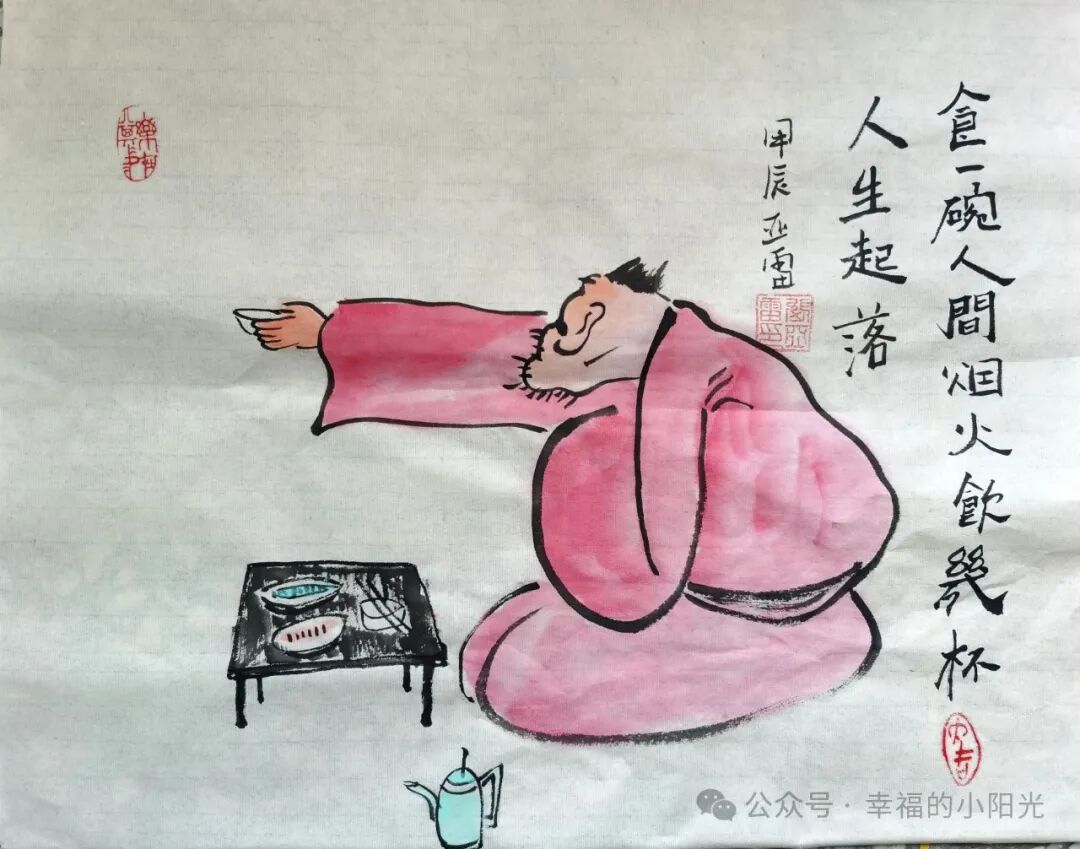 食一碗人間烟火飲幾杯
人生起落
甲辰亚雷
公众号·幸福的小阳光